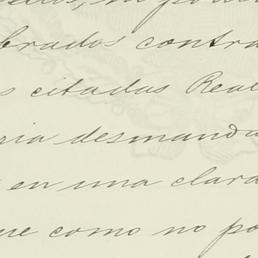 brados contra
s citadas Real
ria desmanda
en una clara
ue como no po